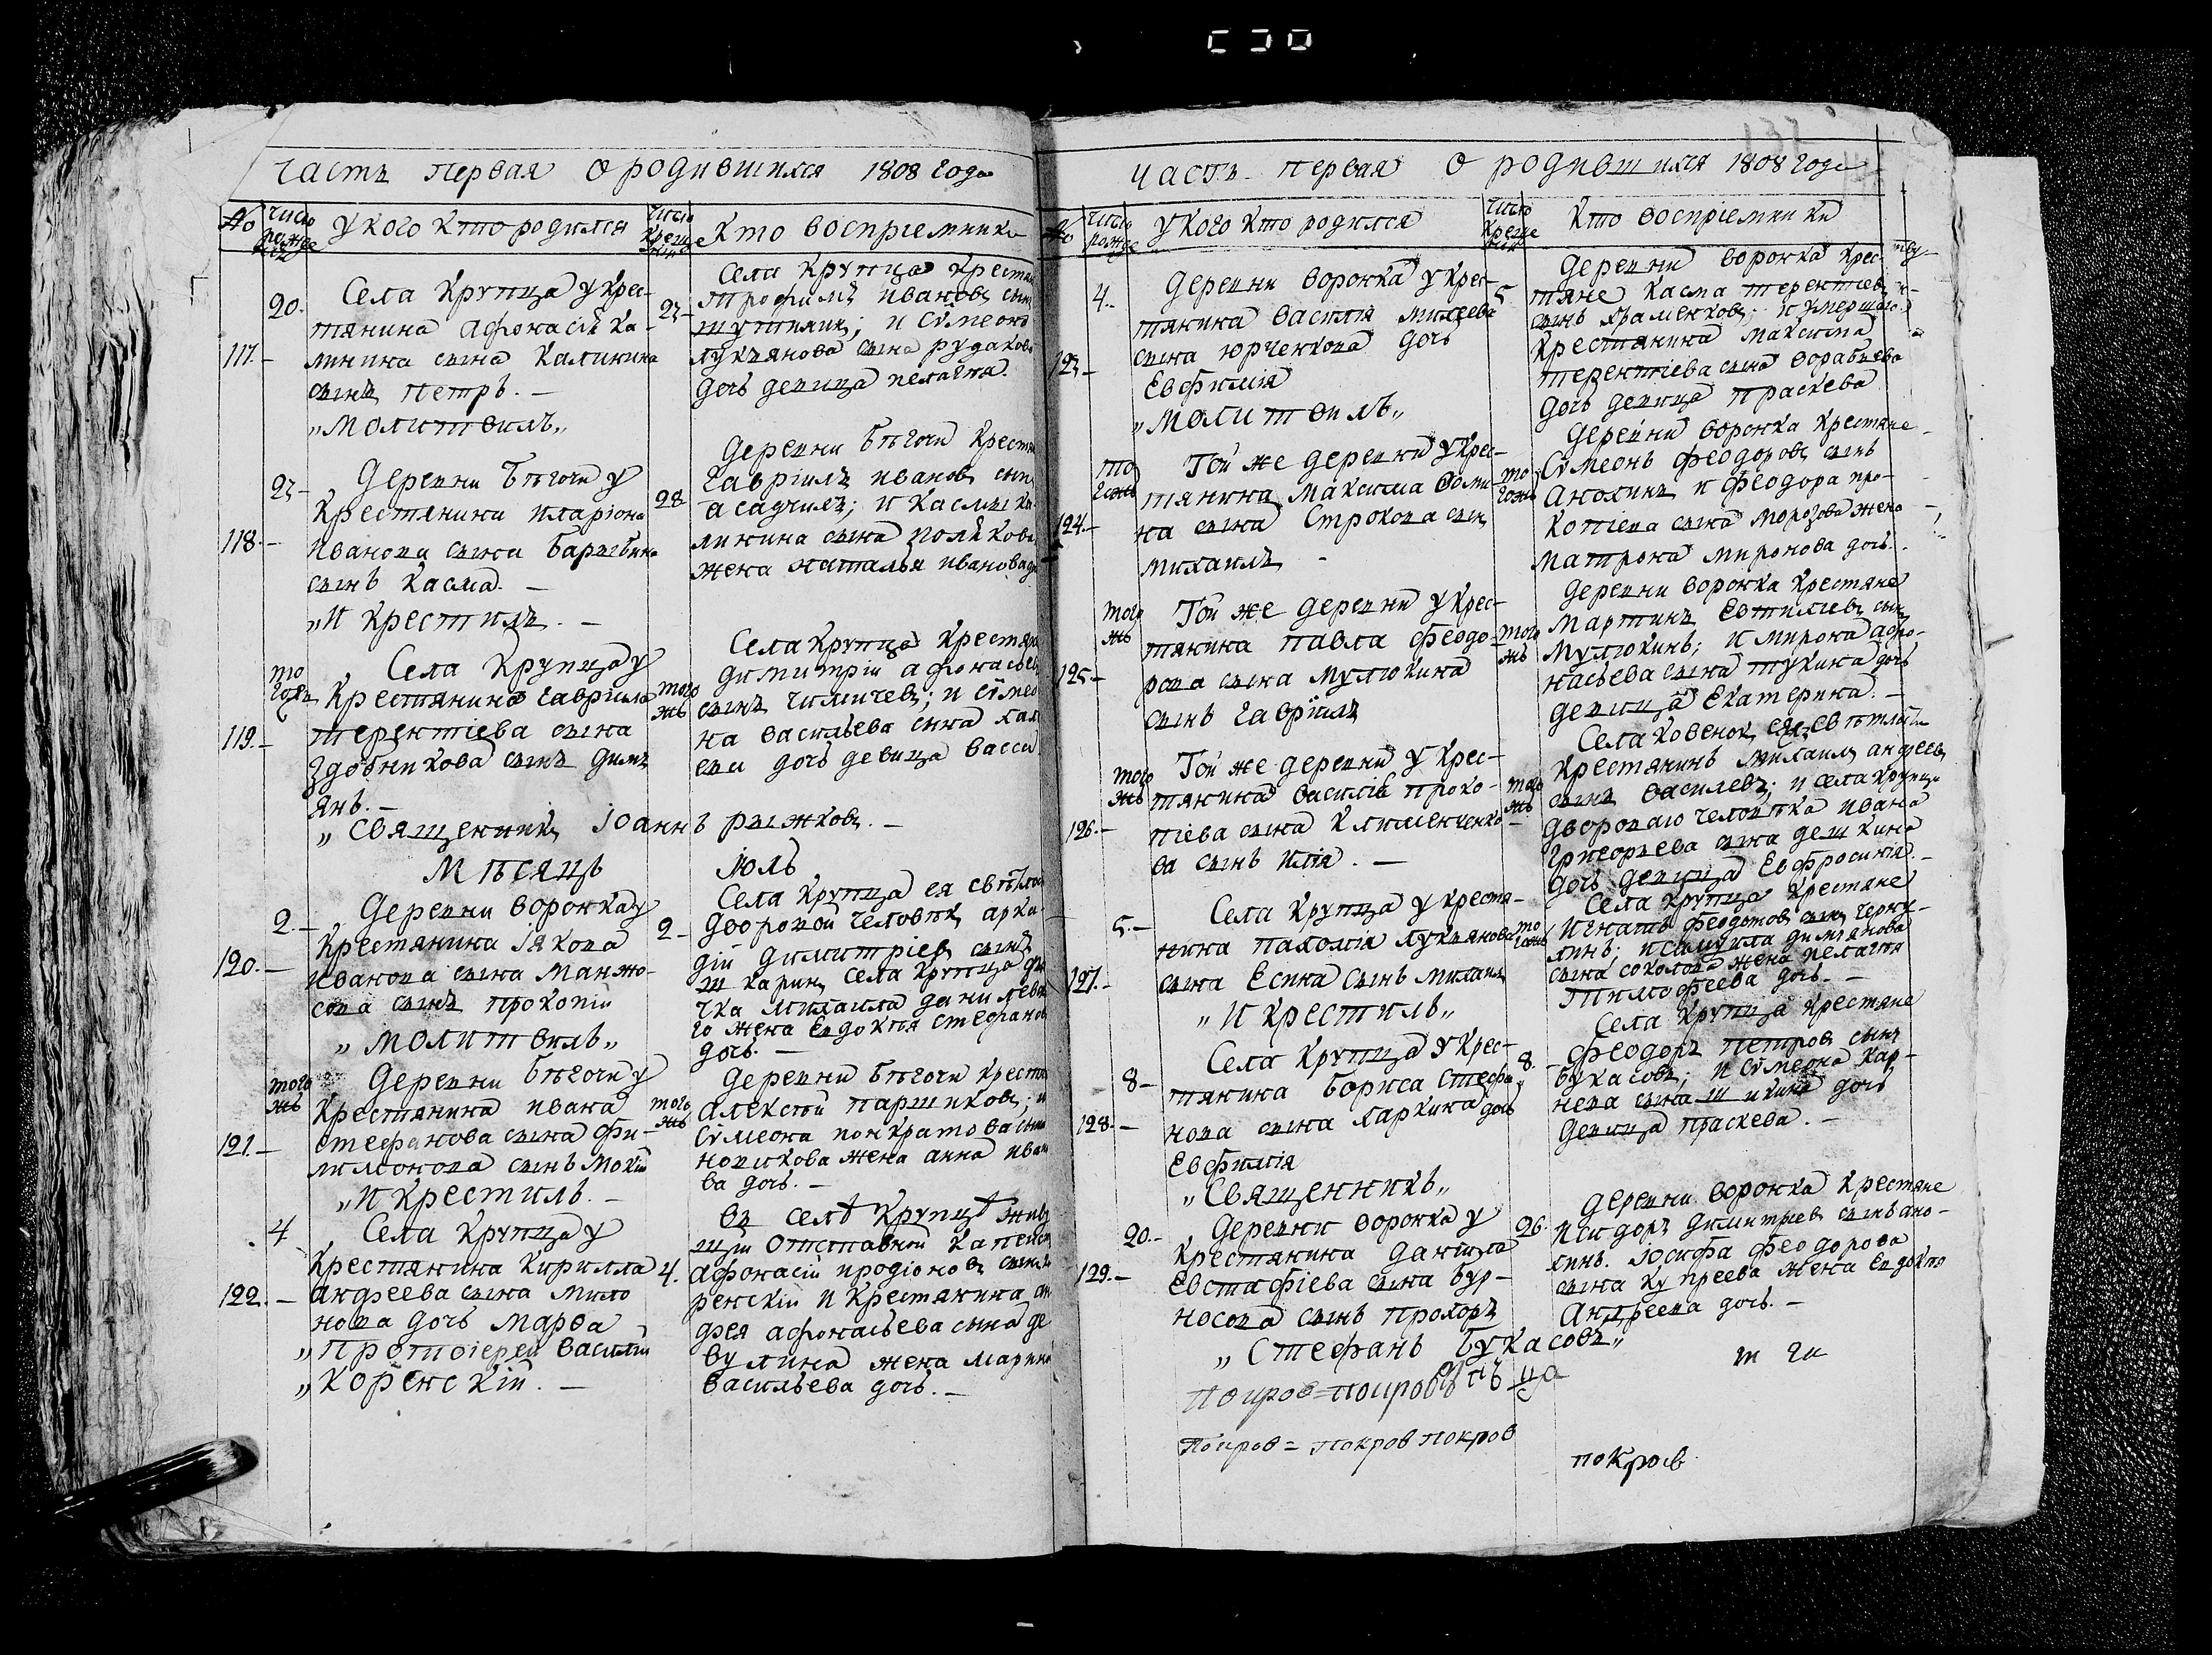 Часть первая о родившихся 1808 года
№ число рожде нія
у кого кто родился
число креще нія
кто воспріемники
20.
117.
Села Крупца у крес-
тянина Афонасія Ка-
линина сына Калинина
сынъ Петръ. —
„молитвилъ„
27
Села Крупца крестян
Трофимъ Ивановъ сынъ
Шутилин; и Сѵмеона
Лукьянова сына Рудакова
дочь девица Пелагия.
27
118.
Деревни Бегочи у
крестянина Иларіона
Иванова сына Барыбина
сынъ Касма. —
„и крестилъ. —
28
Деревни Бегочи крестян
Гавріилъ Иванов сынъ
Асадчихъ; и Касмы Ка
линина сына Полякова
жена Наталья Иванова д
того ж
119.
Села Крупца у
крестянина Гавріила
Терентіева сына
Здобникова сынъ Димъ
янъ. —
„Священникъ Іоаннъ Рыжковъ. —
того жъ
Села Крупца крестян
Димитрій Афонасьев
сынъ Чимичев; и Сѵмео
на Васильева сына
ева дочь девица Васси
Месяцъ Іюль
2. —
120. —
Деревни Ворожка у
крестянина Іякова
Иванова сына Манжо-
сова сынъ Прокопій
„молитвилъ„
2
Села Крупца ея светлос
дворовой человекъ Арка
дій Димитріевъ сынъ
Шкарин, села Крупца дья
чка Михаила Данилевск
го жена Евдокия Стефанова
дочь. —
того жъ
121. —
Деревни Бегочи у
крестянина Ивана
Стефанова сына Фи-
лимонова сынъ Мокій
„и крестилъ. —
того жъ
Деревни Бегочи крестя
Алексей Паршиковъ; и
Сѵмеона Понкратова сына
Новикова жена Анна Ивано
ва дочь. —
4
122. —
Села Крупца у
крестянина Кирилла
Андреева сына Мило
нова дочь Марѳа
„Протоіерей Василій
„Коренскій. —
4.
въ селе Крупце живу
щій отставной капенст
Афонасій Иродіоновъ сынъ
ренскій и крестянина Ан
дрея Афонасьева сына Де
вулина жена Марина
Васильева дочь. —
Часть первая о родившихся 1808 года
№ число рожде нія
у кого кто родился
число креще нія
кто воспріемники
4.
123 —
Деревни Ворожка у крес-
тянина Василія Михеева
сына Юрченкова дочь
Евфимія
„молитвилъ„
5
Деревни Ворожка крес-
тяне Касма Терентіев
сынъ Храменковъ; и умершаго
крестянина Максима
Терентіева сына Воробиева
дочь девица Праскева
того жъ
124. —
Той же деревни у крес-
тянина Максима Фоми-
на сына Строкова сын
Михаилъ —
того жъ
Деревни Ворожка крестяне
Сѵмеонъ Феодоровъ сынъ
Анохинъ и Феодора Про-
копіева сына Морозова жена
Матрона Миронова дочь.
того жъ
125 —
Той же деревни у крес-
тянина Павла Феодо-
рова сына Мулюкина
сынъ Гавріилъ
того жъ
Деревни Ворожка крестяне
Мартинъ Евтихіев сын
Мулюкинъ; и Мирона Афо-
насьева сына Тукина дочь
девица Екатерина. —
того жъ
126. —
Той же деревни у крес-
тянина Василія Проко-
піева сына Клименченко-
ва сынъ Илія. —
того жъ
Села Ковенокъ ея светлости
крестянинъ Михаилъ Андреев
сынъ Василевъ; и села Крупца
двороваго человека Ивана
Григорьева сына Дешкина
дочь девица Евфросинія. —
5. —
127. —
Села Крупца у крестя-
нина Пахомія Лукьянова
сына Есина сынъ Михаил
„и крестилъ„
того жъ
Села Крупца крестяне
Игнатъ Феодотовъ сынъ Черку-
хинъ; и Самуила Димъянова
сына Соколова жена Пелагия
Тимофеева дочь. —
8 —
128. —
Села Крупца у крес-
тянина Бориса Стефа
нова сына Ларкина дочь
Евфимія
„Священникъ„
8.
Села Крупца крестяне
Феодоръ Петров сынъ
Букасовъ; и Сѵмеона Кар-
нева сына Шикина дочь
девица Праскева. —
20. —
129. —
Деревни Ворожка у
крестянина Данила
Евстафіева сына Бур-
носова сынъ Прохоръ
„Стефанъ Букасовъ„
26.
Деревни Ворожка крестяне
Исидоръ Димитріев сынъ Ано-
хинъ. Іосифа Феодорова
сына Купреева жена Евдокия
Андреева дочь. —
Покров = покров
Покров = покров покров
покров